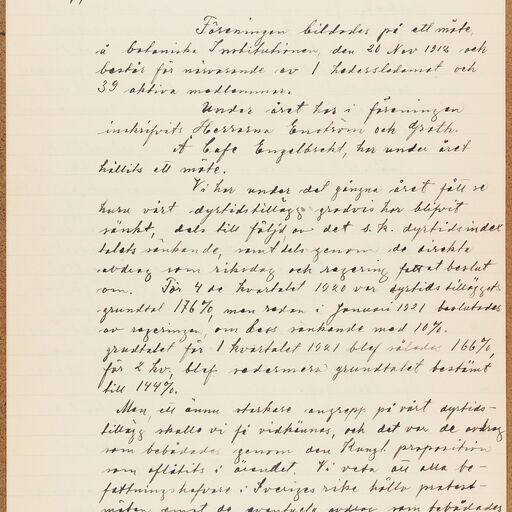 Föreningen bildades på ett möte,
å botaniska Institutionen, den 20 Nov 1914 och
består för närvarande av 1 hedersledamot och
39 aktiva medlemmar.
Under året har i föreningen
inskrifvits Herrarna Enström och Groth.
Å Café Engelbrekt, har under året
hållits ett möte.
Vi har under det gångna året fått se
huru vårt dyrtidstillägg gradvis har blifvit
sänkt, dels till följd av det s.k. dyrtidsindex
talets sänkande, samt dels genom de direkta
avdrag som riksdag och regering fattat beslut
om. För 4 de kvartalet 1920 var dyrtidstilläggets
grundtal 176%, men redan i Januari 1921 beslutades
av regeringen, om dess sänkande med 10%.
grudtalet för 1 kvartalet 1921 blef således 166%,
för 2 kv. blef sedermera grundtalet bestämt
till 144%.
Men, ett ännu starkare angrepp på vårt dyrtids-
tillägg skulle vi få vidkännas, och det var de avdrag
som bebådades genom den Kungl. proposition
som aflåtits i ärendet. Vi veta att alla be-
fattningshafvare i Sveriges rike höllo protest-
möten emot de eventuela avdrag som bebådades